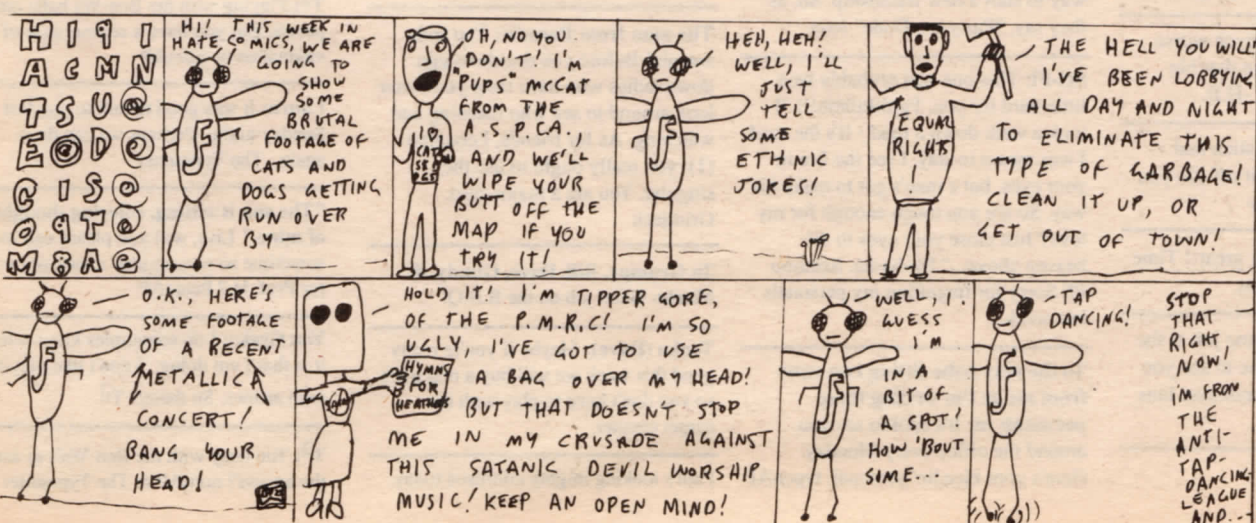 H I 9 1
A C M N
T S U @
E @ D @
C I S @
O 9 T @
M 8 A @
HI! THIS WEEK IN
HATE COMICS, WE ARE
GOING TO
SHOW
SOME
BRUTAL
FOOTAGE OF
CATS AND
DOGS GETTING
RUN OVER
BY...
F
OH, NO YOU
DON'T! I'M
"PUPS" McCAT
FROM THE
A.S.P.C.A.
AND WE'LL
WIPE YOUR
BUTT OFF THE
MAP IF YOU
TRY IT!
I ♥
CATS
HEH, HEH!
WELL, I'LL
JUST
TELL
SOME
ETHNIC
JOKES!
F
THE HELL YOU WILL!
I'VE BEEN LOBBYING
ALL DAY AND NIGHT
TO ELIMINATE THIS
TYPE OF GARBAGE!
CLEAN IT UP, OR
GET OUT OF TOWN!
EQUAL
RIGHTS
!
O.K., HERE'S
SOME FOOTAGE
OF A RECENT
METALLICA
CONCERT!
BANG YOUR
HEAD!
F
HOLD IT! I'M TIPPER GORE,
OF THE P.M.R.C! I'M SO
UGLY, I'VE GOT TO USE
A BAG OVER MY HEAD!
BUT THAT DOESN'T STOP
ME IN MY CRUSADE AGAINST
THIS SATANIC DEVIL WORSHIP
MUSIC! KEEP AN OPEN MIND!
HYMNS
FOR
HEATHENS
WELL, I..
GUESS
I'M
IN A
BIT OF
A SPOT!
HOW 'BOUT
SOME...
F
TAP
DANCING!
F
STOP
THAT
RIGHT
NOW!
I'M FROM
THE
ANTI-
TAP-
DANCING
LEAGUE
AND...